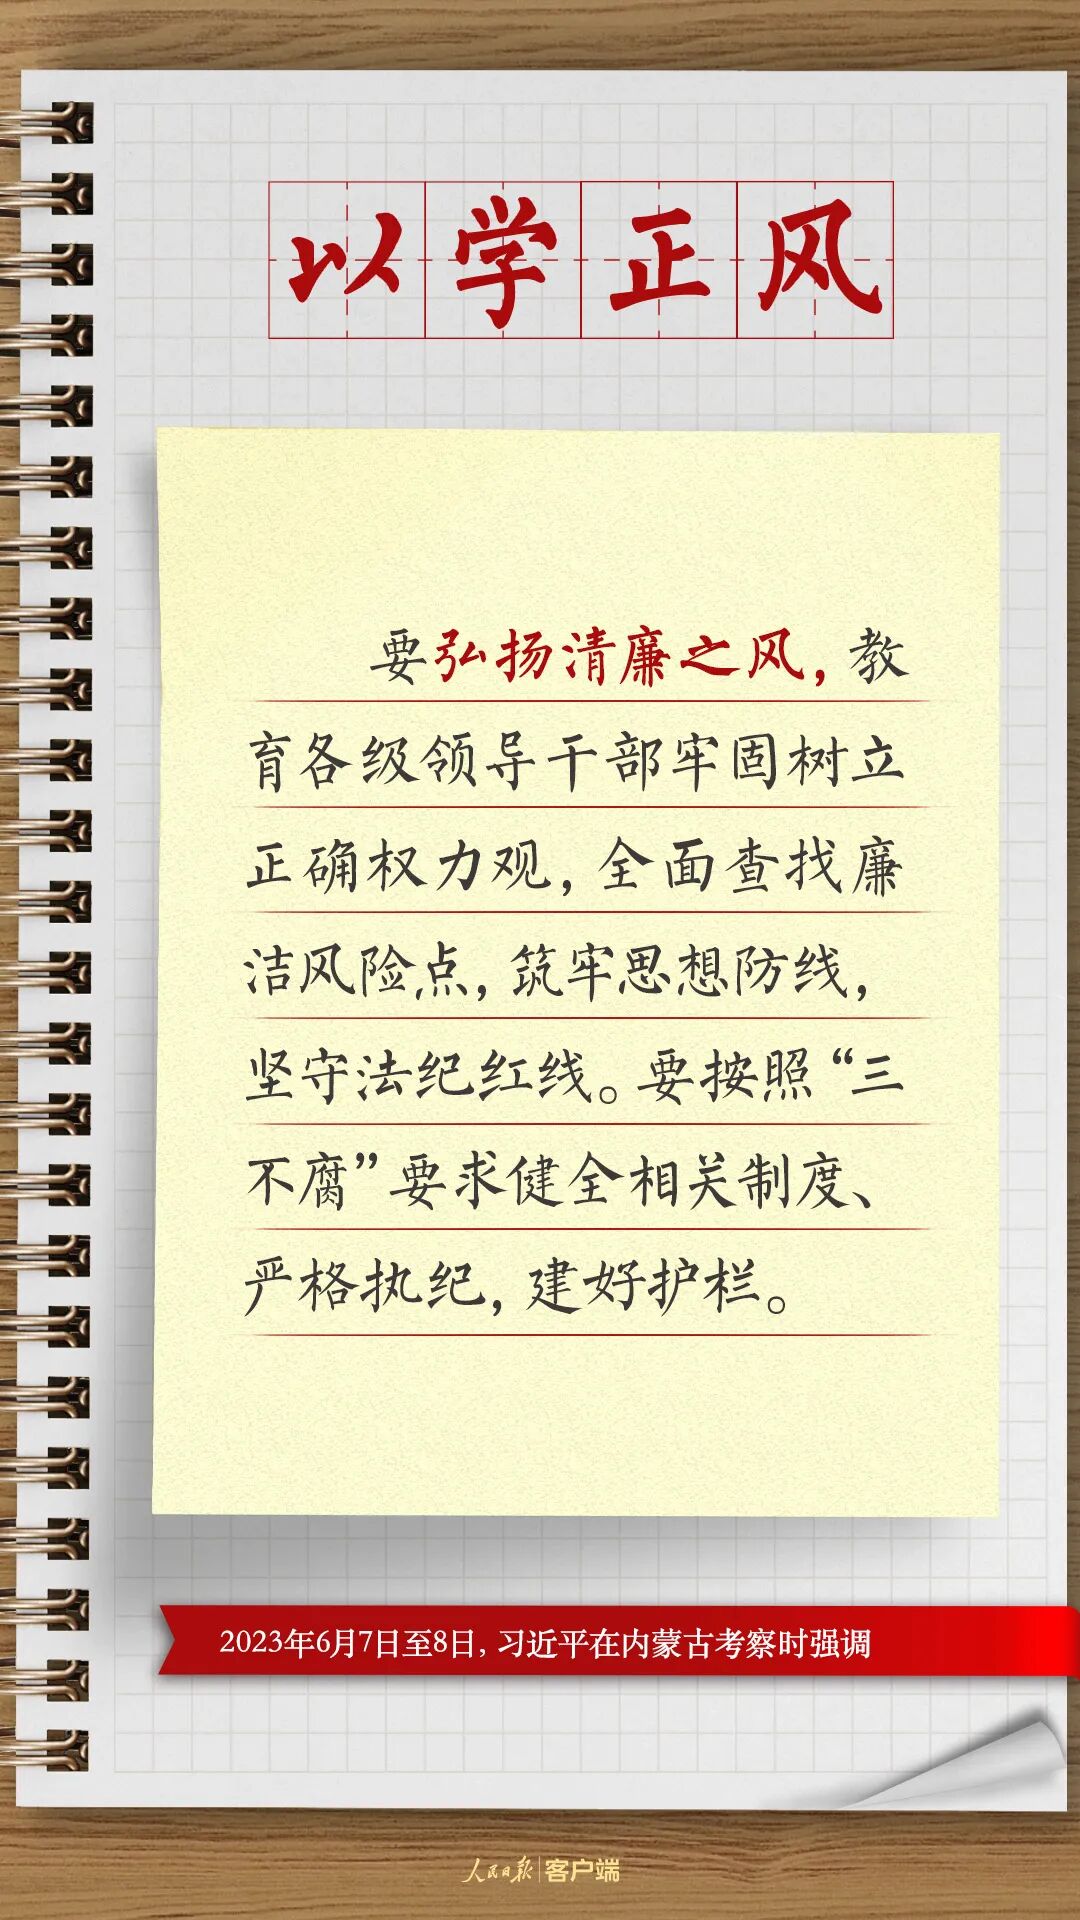 以学正风
要弘扬清廉之风，教
育各级领导干部牢固树立
正确权力观，全面查找廉
洁风险点，筑牢思想防线，
坚守法纪红线。要按照“三
不腐”要求健全相关制度、
严格执纪，建好护栏。
2023年6月7日至8日，习近平在内蒙古考察时强调
人民日报|客户端